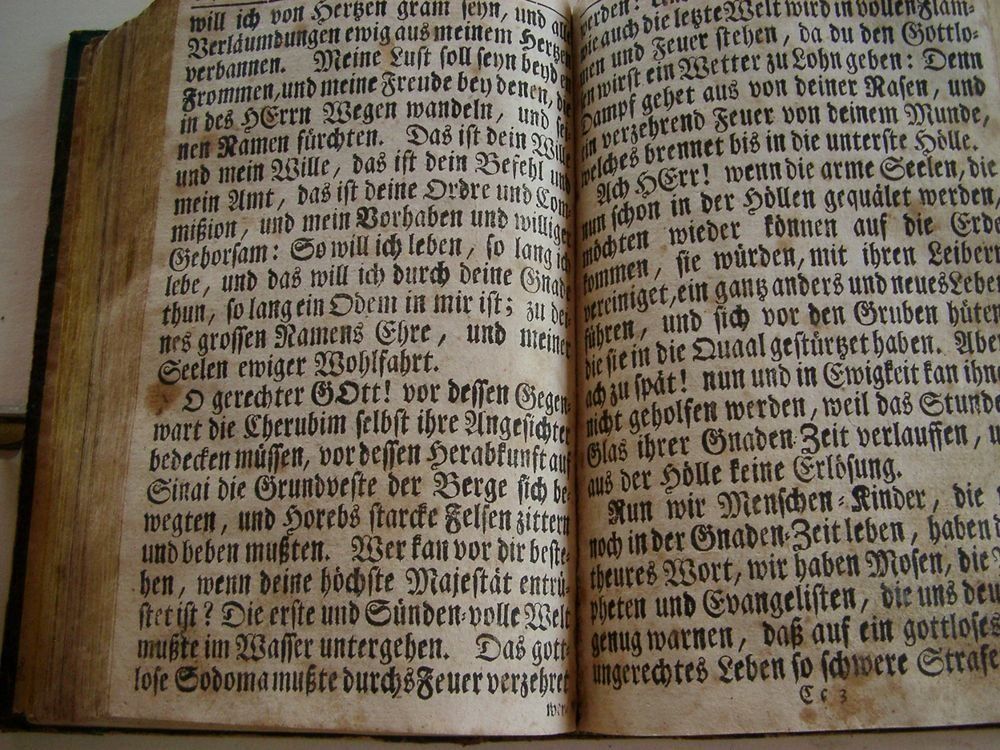 will ich von Hertzen gram seyn, und all
Verläumdungen ewig aus meinem Hertzen
verbannen. Meine Lust soll seyn bey den
Frommen, und meine Freude bey denen, die
in des HErrn Wegen wandeln, und sei-
nen Namen fürchten. Das ist dein Wille
und mein Wille, das ist dein Befehl und
mein Amt, das ist deine Ordre und Com-
mißion, und mein Vorhaben und williger
Gehorsam: So will ich leben, so lang ich
lebe, und das will ich durch deine Gnade
thun, so lang ein Odem in mir ist; zu dei-
nes grossen Namens Ehre, und meiner
Seelen ewiger Wohlfahrt.
O gerechter GOtt! vor dessen Gegen-
wart die Cherubim selbst ihre Angesichter
bedecken müssen, vor dessen Herabkunft auf
Sinai die Grundveste der Berge sich be-
wegten, und Horebs starcke Felsen zittern
und beben mußten. Wer kan vor dir beste-
hen, wenn deine höchste Majestät entrü-
stet ist? Die erste und Sünden-volle Welt
mußte im Wasser untergehen. Das gott-
lose Sodoma mußte durchs Feuer verzehret
wer-
werden:
wie auch die letzte Welt wird in vollen Flam-
men und Feuer stehen, da du den Gottlo-
sen wirst ein Wetter zu Lohn geben: Denn
Dampf gehet aus von deiner Nasen, und
ein verzehrend Feuer von deinem Munde,
welches brennet bis in die unterste Hölle.
Ach HErr! wenn die arme Seelen, die
nun schon in der Höllen gequälet werden,
möchten wieder können auf die Erde
kommen, sie würden, mit ihren Leibern
vereiniget, ein gantz anders und neues Leben
führen, und sich vor den Gruben hüten
die sie in die Quaal gestürtzet haben. Aber
ach zu spät! nun und in Ewigkeit kan ihnen
nicht geholfen werden, weil das Stunden-
Glas ihrer Gnaden-Zeit verlauffen, u
aus der Hölle keine Erlösung.
Nun wir Menschen-Kinder, die
noch in der Gnaden-Zeit leben, haben
theures Wort, wir haben Mosen, die
pheten und Evangelisten, die uns deu
genug warnen, daß auf ein gottloses
ungerechtes Leben so schwere Strafe
Cc 3